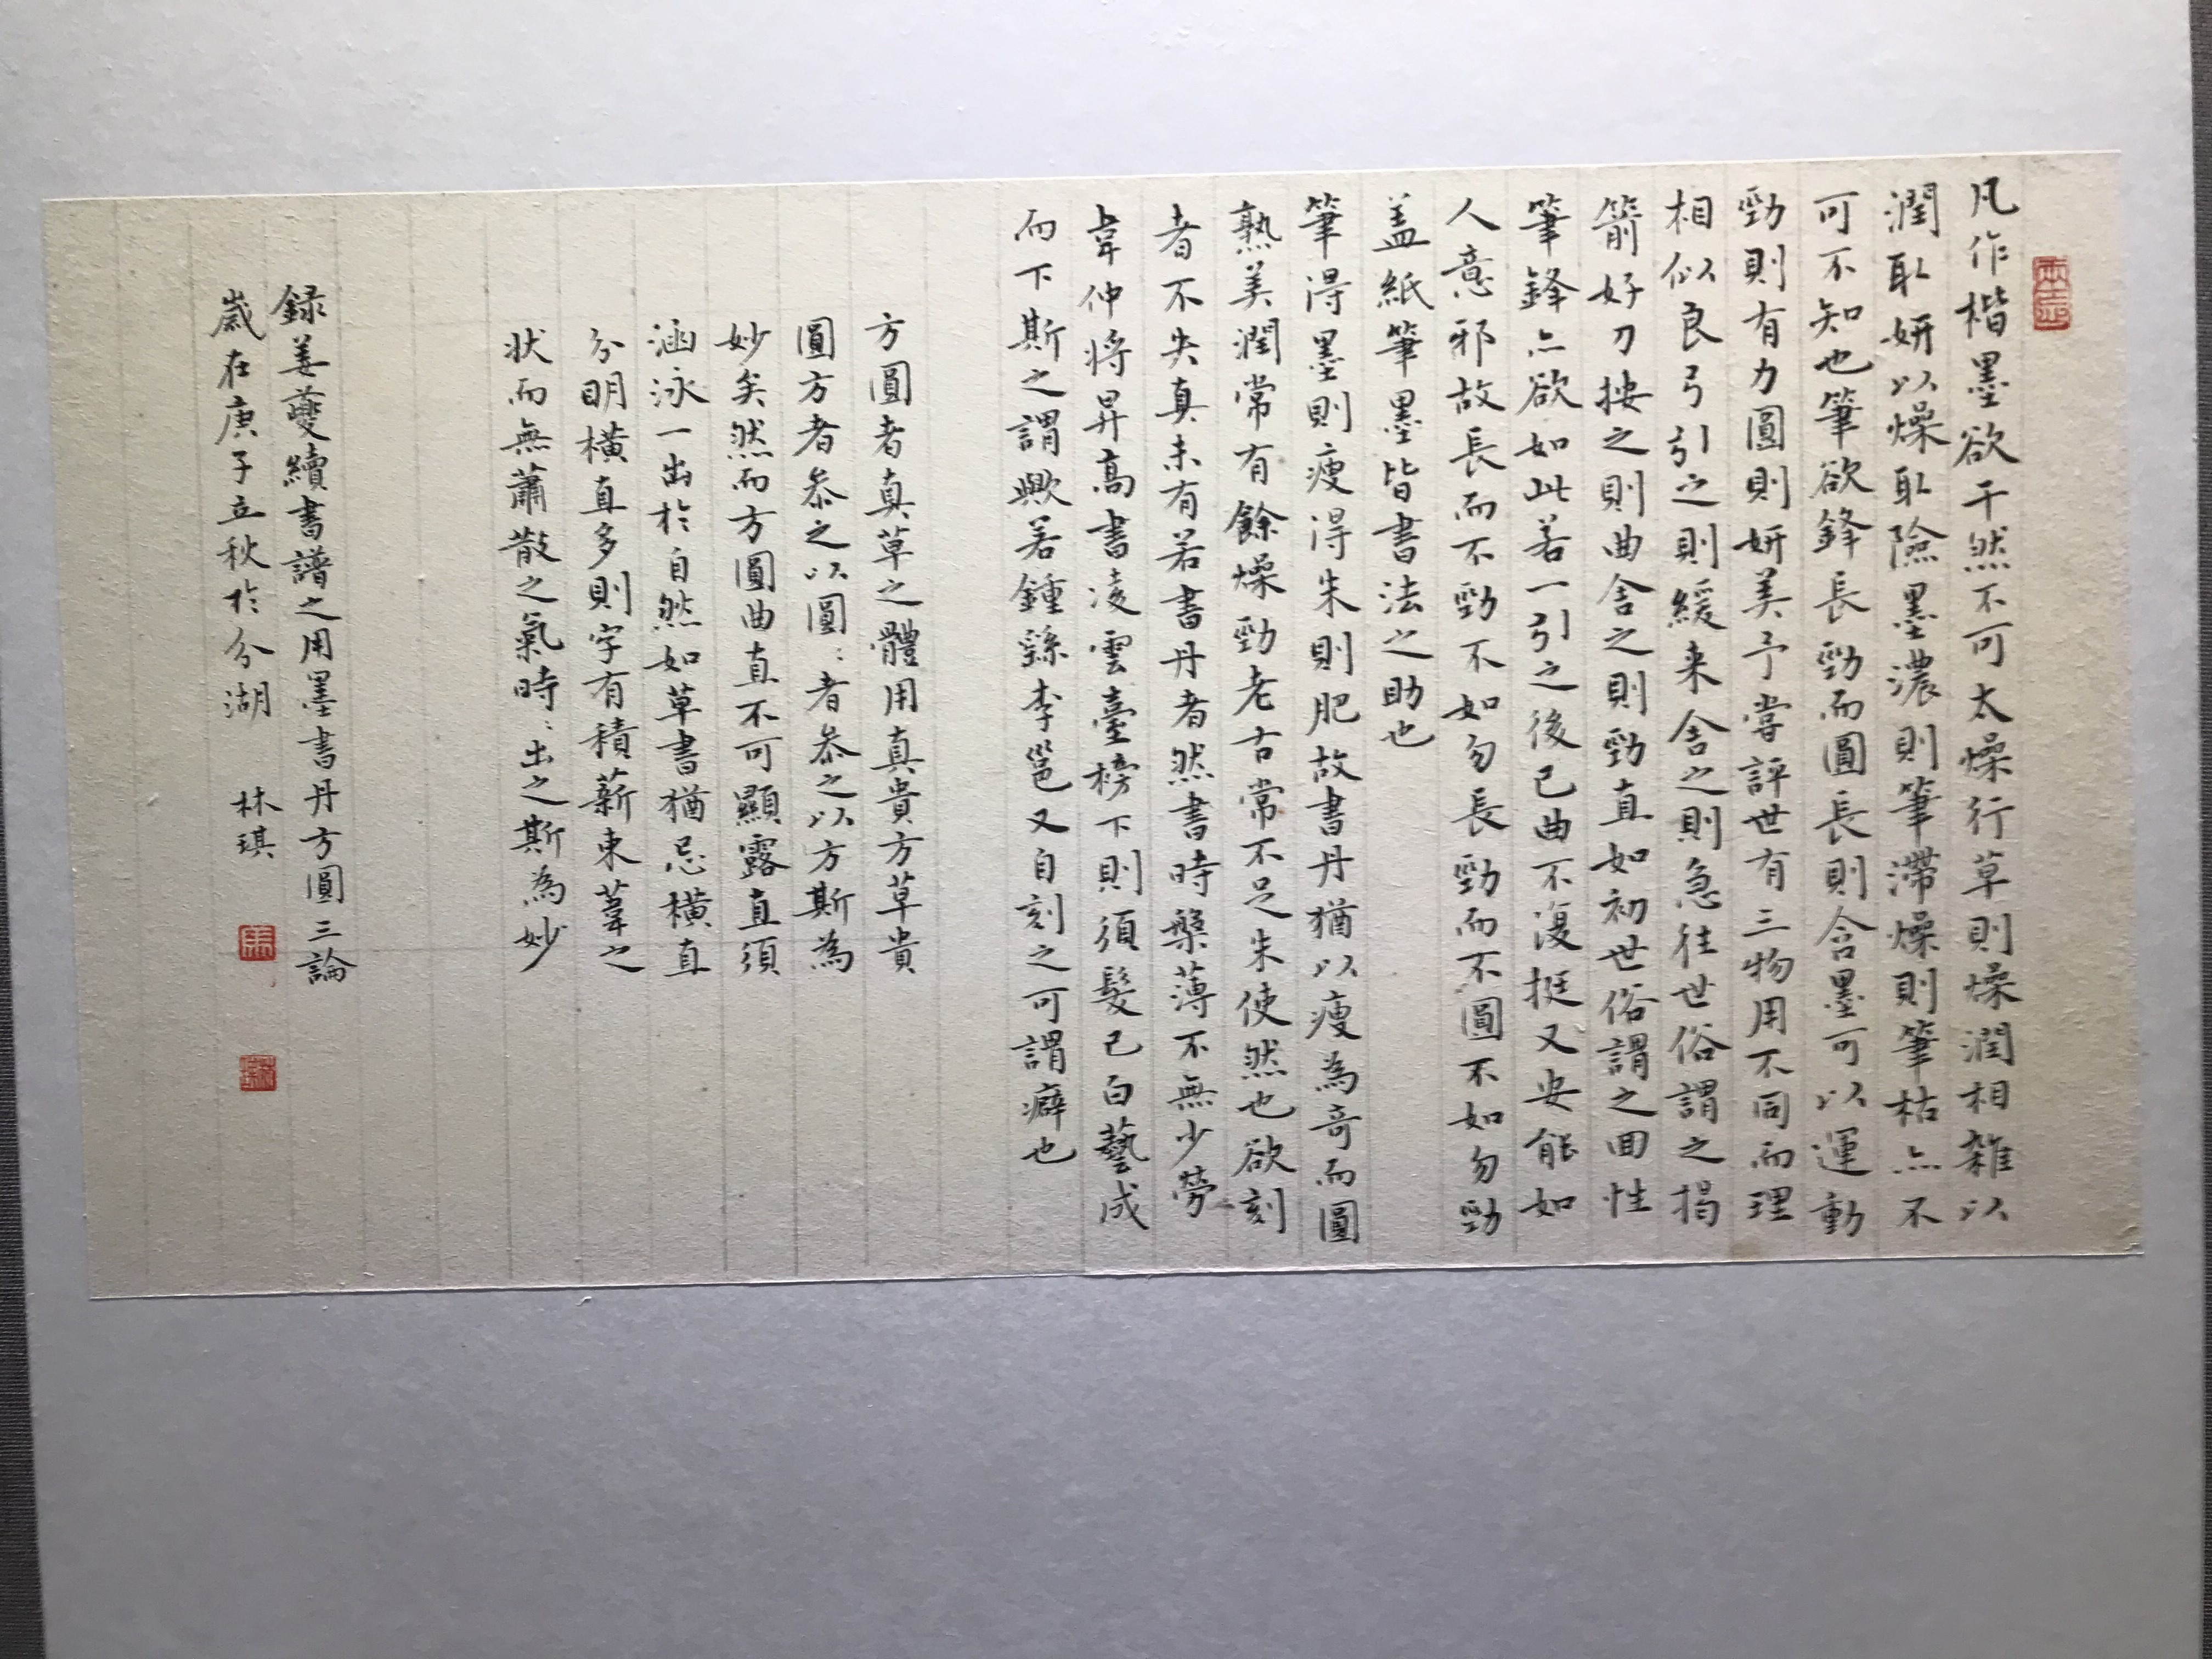 凡作楷墨欲干然不可太燥行草則燥潤相雜以
潤取妍以燥取險墨濃則筆滯燥則筆枯亦不
可不知也筆欲鋒長勁而圓長則含墨可以運動
勁則有力圓則妍美予嘗評世有三物用不同而理
相似良弓引之則緩来舍之則急往世俗謂之揭
箭好刀按之則曲舍之則勁直如初世俗謂之回性
筆鋒亦欲如此若一引之後已曲不復挺又安能如
人意邪故長而不勁不如勿長勁而不圓不如勿勁
盖紙筆墨皆書法之助也
筆得墨則瘦得朱則肥故書丹猶以瘦為奇而圓
熟美潤常有餘燥勁老古常不足朱使然也欲刻
者不失真未有若書丹者然書時槃薄不無少勞
韋仲将昇高書凌雲臺榜下則須髮已白藝成
而下斯之謂歟若鍾繇李邕又自刻之可謂癖也
方圓者真草之體用真貴方草貴
圓方者叅之以圓〻者叅之以方斯為
妙矣然而方圓曲直不可顯露直須
涵泳一出於自然如草書猶忌橫直
分明橫直多則字有積薪束葦之
状而無蕭散之氣時〻出之斯為妙
録姜夔續書譜之用墨書丹方圓三論
歲在庚子立秋於分湖 林琪